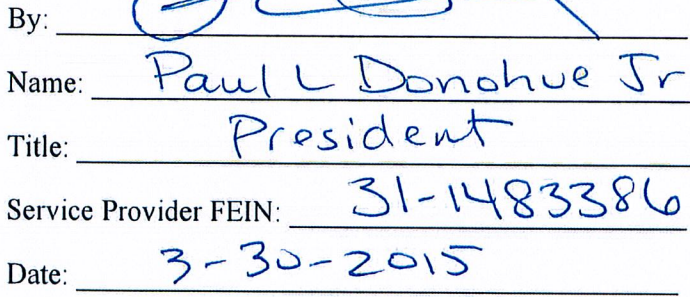 By:
Name: Paul L Donohue Jr
Title: President
Service Provider FEIN: 31-1483386
Date: 3-30-2015